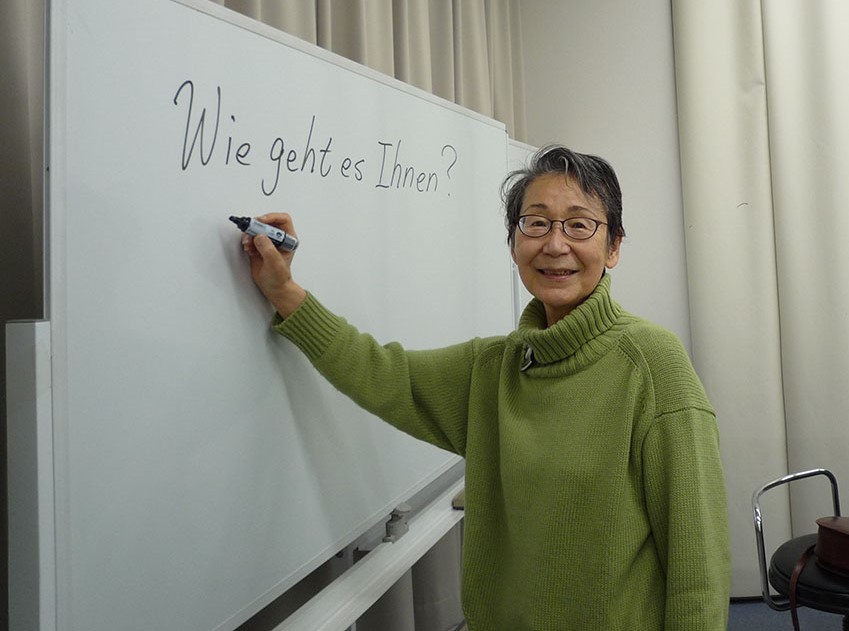 Wie geht es Ihnen?